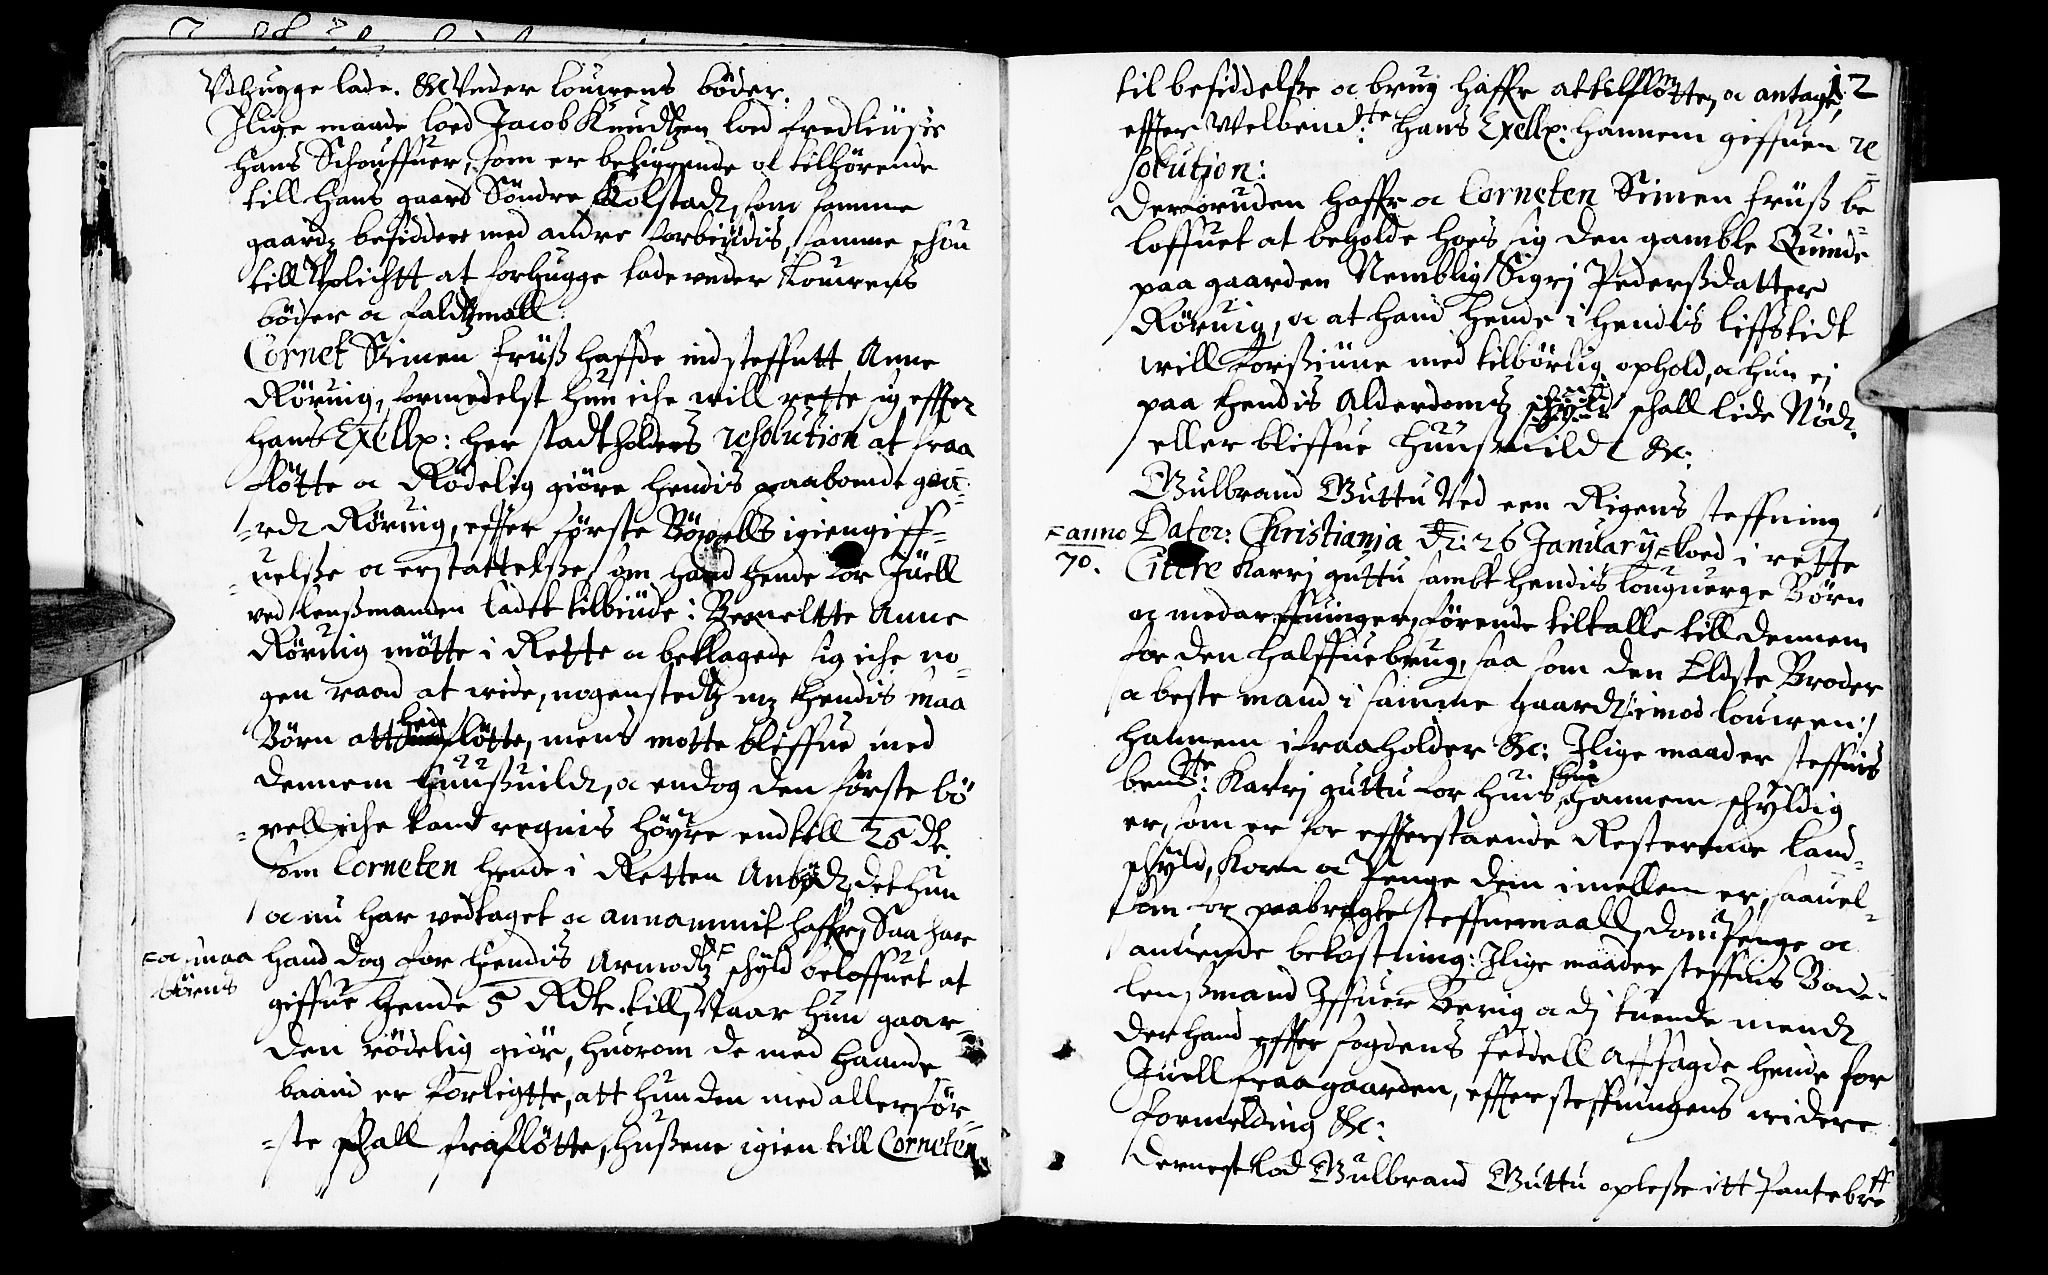 Vdhugge lade. &c Vnder lougens bøder.
Ilige maade loed Jacob Knudtzen loed fredliuse
hans Schouffuer, som er beliggende oc tilhørende
till hans gaard Søndre Kolstadt, som samme
gaardz besiddere med andre forbiudis, samme schou
till Vplichtt at forhugge lade vnder Lougens
bøder oc faldtzmall
Cornet Simen Friiss haffde indsteffntt Anne
Røruig, formedelst hun iche will rette sig effter
hans Exellz: her stadtholders resolution at fraa
fløtte oc Rødelig giøre hendis paaboende gaa-
-rdt Røruig, effter første Bøxells igiengiff-
uelsse oc erstattelsse som hand hende for Juell
ved lenssmanden ladet tilbiude: Bemeltte Anne
Røruig møtte i Rette oc beklagede sig iche no-
gen raad at wide, nogenstedtz mz Hendis smaa
Børn att hen fløtte, mens motte bliffue med
dennem huussuildt, oc endog den første bø
-xell iche kand regnis høyre end till 25 dr.
som Corneten hende i Retten Anbødt, det hun
oc nu har vedtaget oc annammit haffr, Saa har
hand dog for hendis Armodtz F schyld beloffuet at
F oc smaa
børens
giffue hende 5 Rdr. till, Naar hun gaar-
den rødelig giør, huorom de med haande
baand er forligtte, att hun den med allerfør-
-ste schall frafløtte, hussene igien till Corneten
12
til besiddelsse oc brug haffr at tilfløtte, oc antage,
effter Welbemdte hans Exellz: hannem giffuen re
solution:
Derforuden haffr oc Corneten Simen Friiss be-
loffuet at beholde hoes sig den gamble Quinde
paa gaarden Nemblig Sigrj Pederssdatter
Røruig, oc at hand hende i hendis liffstidt
will forssiune med tilbørlig ophold, oc hun ej
paa hendis Alderdoms schyld schall lide Nødt.
eller bliffue huussuildt &c:
Gulbrand Guttu Ved een Rigens steffning
Dater: Christiania d: 26 January F loed i rette
F anno
70.
Citere Karrj guttu sambt hendis lougverge Børn
oc medarffuinger, førende tiltalle till dennem
for den halffuebrug, saa som den Eldste Broder
oc beste mand i samme gaardt /: imod lougen :/
hannem ifraaholder &c: Ilige maader steffnis
bemdte: Karrj guttu for huis hun hannem schyldig
er, som er for effterstaaende Resterende land-
schyld, korn oc Penge dem imellem er, saauel-
som for paabragte steffnemaall, dompenge oc
anuende bekostning: Ilige maader steffnis Bonde-
lenssmand Iffuer Berig oc dj tuende mendt
der hand effter fogdens seddell affsagde hende for
Juell fraa gaarden, effter steffningens widere
formelding &c:
Dernest lod Gulbrand Guttu oplesse itt Pantebreff